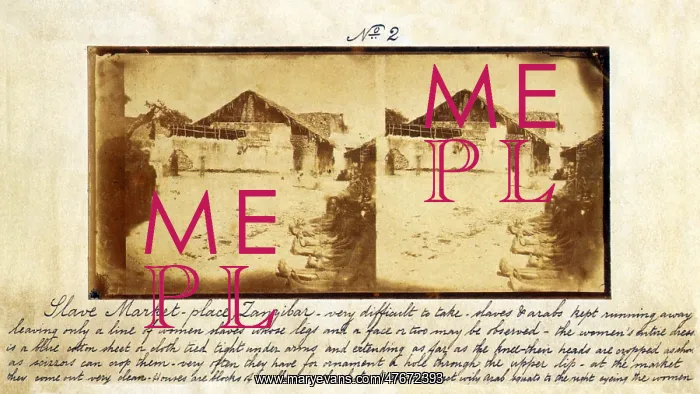 Nº 2
ME
PL
ME
PL
Slave Market-place, Zanzibar - very difficult to take - slaves & arabs kept running away
leaving only a line of women slaves whose legs and a face or two may be observed - the women's entire dress
is a blue cotton sheet or cloth tied tight under arms and extending as far as the knee - their heads are cropped as short
as scissors can crop them - very often they have for ornament a hole through the upper lip - at the market
they come out very clean - Houses are blocks of
www.maryevans.com/47672393
arab to the right eyeing the women